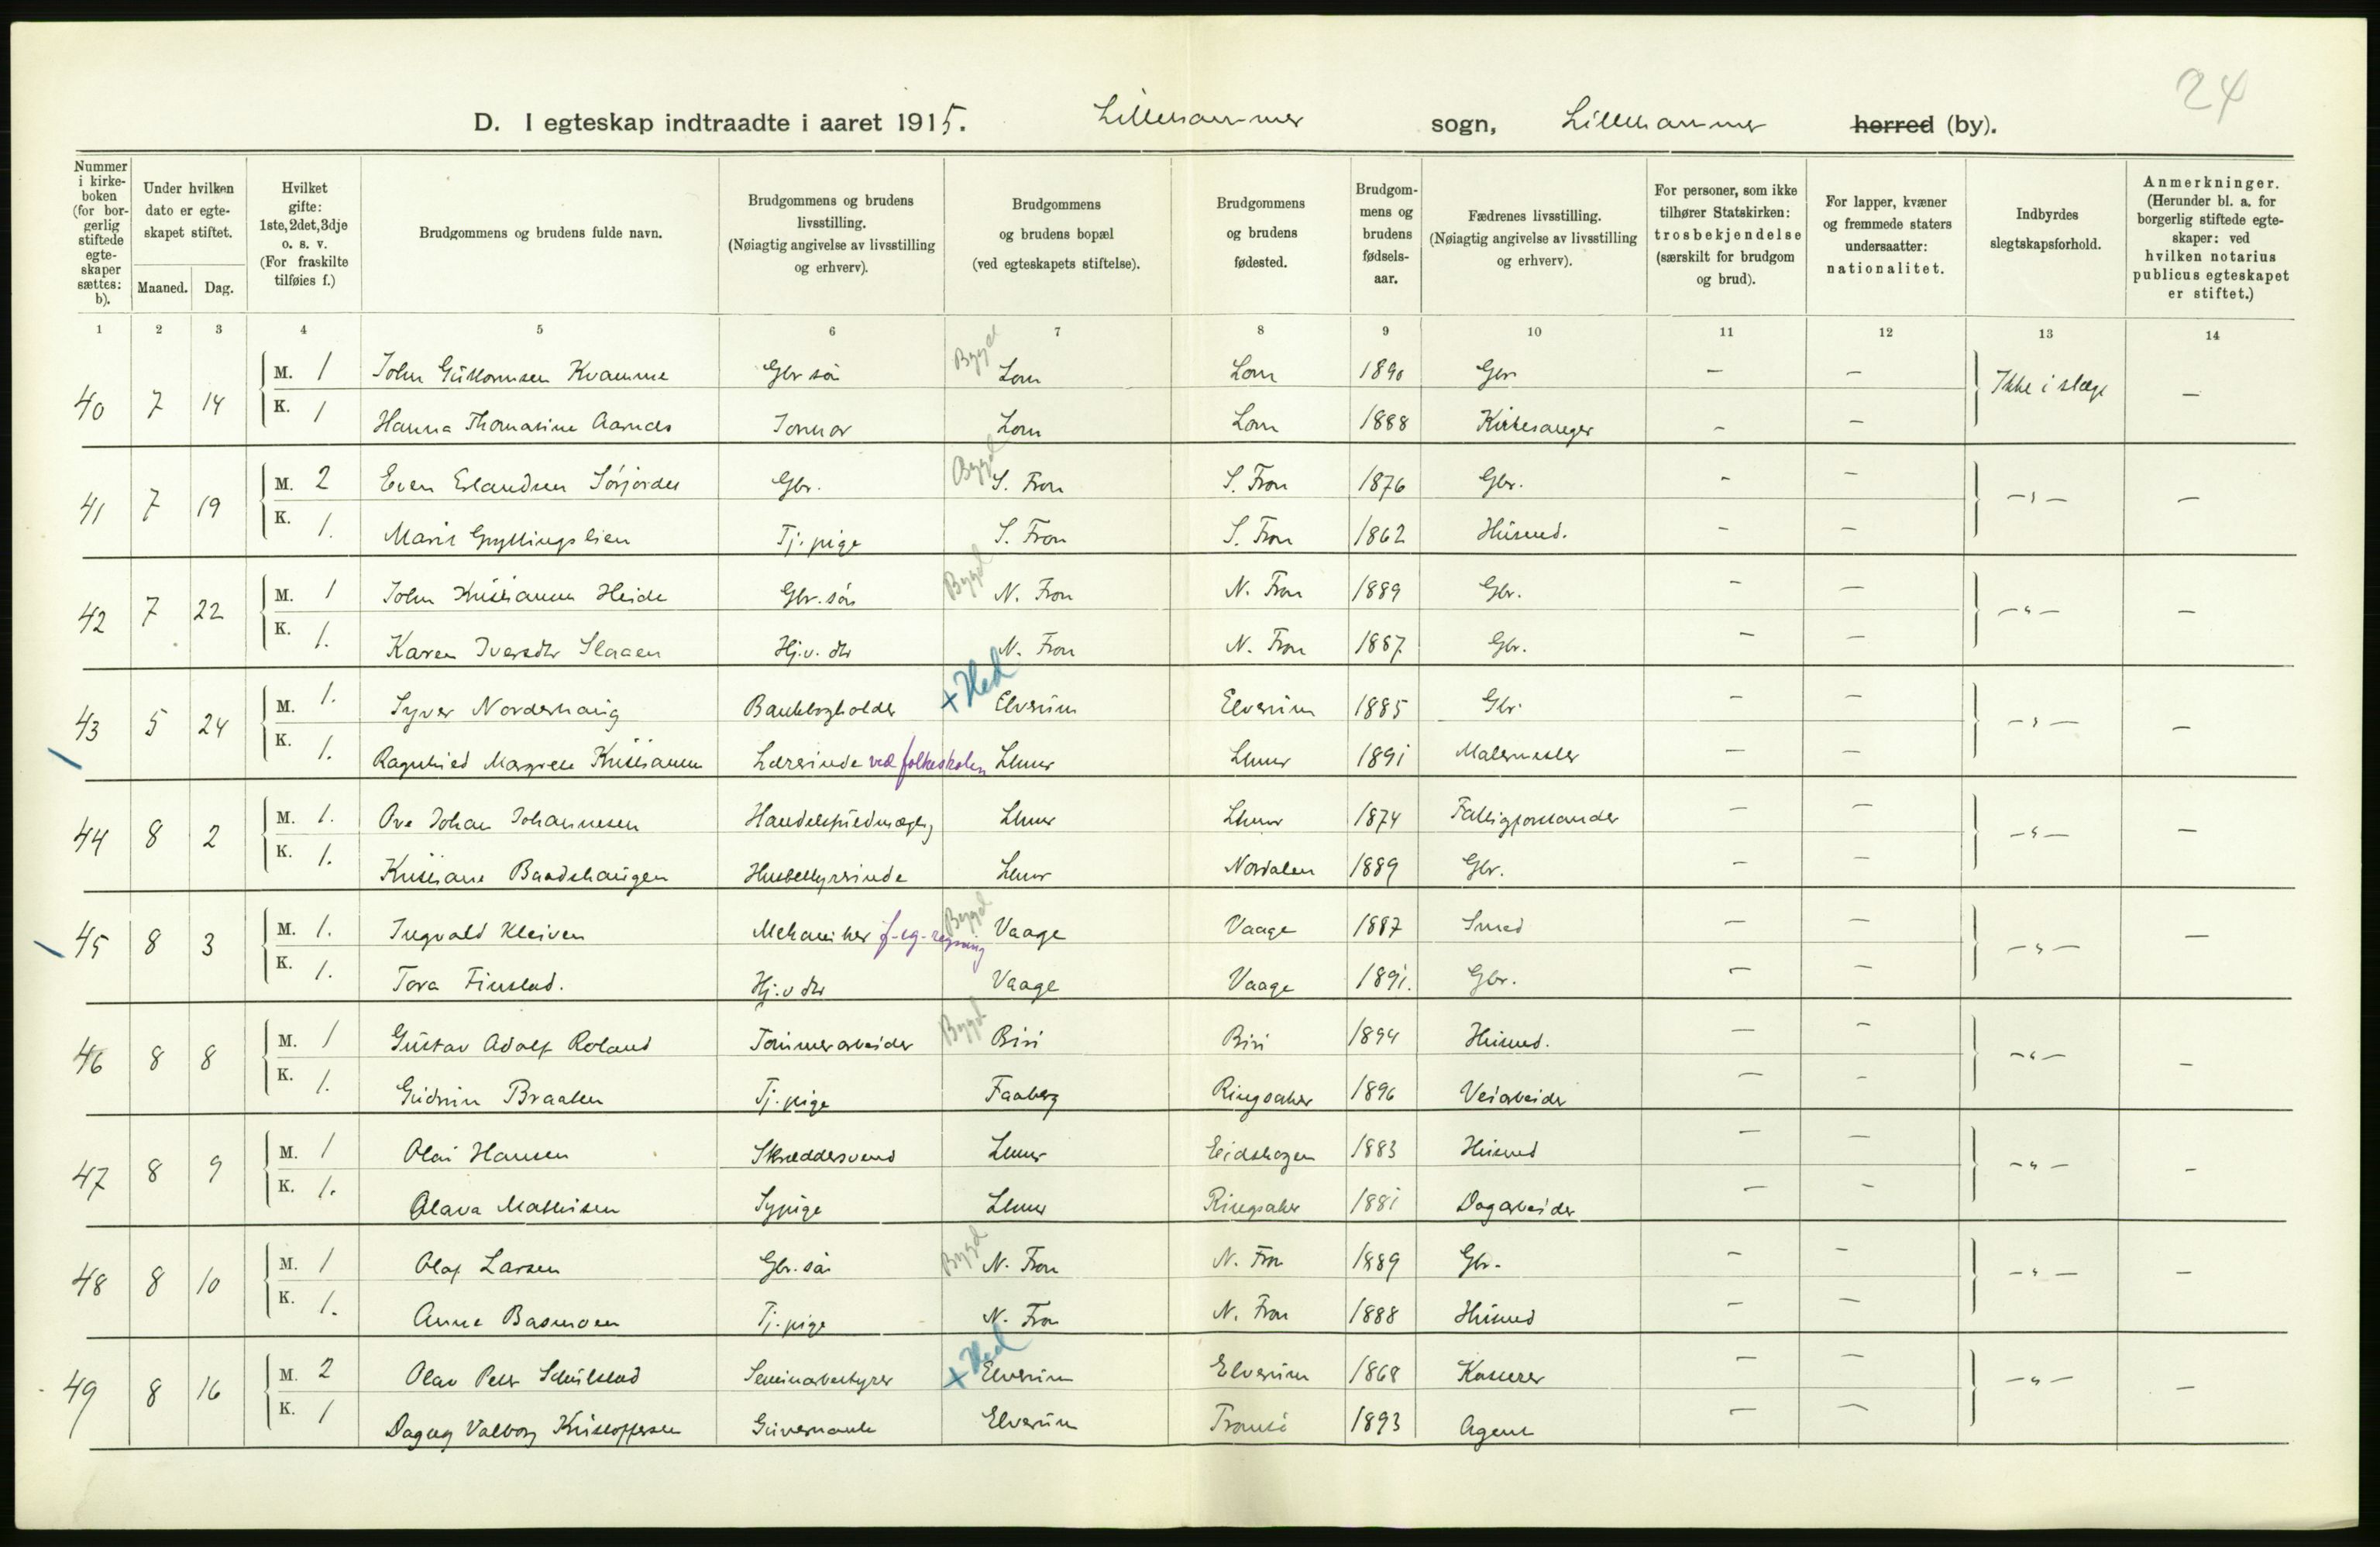 24
D. I egteskap indtraadte i aaret 1915. Lillehammer sogn, Lillehammer herred (by).
Nummer i kirkeboken (for borgerlig stiftede egteskaper sættes: b).
Under hvilken dato er egteskapet stiftet.
Maaned. Dag.
Hvilket gifte: 1ste, 2det, 3dje o. s. v. (For fraskilte tilføies f.)
Brudgommens og brudens fulde navn.
Brudgommens og brudens livsstilling. (Nøiagtig angivelse av livsstilling og erhverv).
Brudgommens og brudens bopæl (ved egteskapets stiftelse).
Brudgommens og brudens fødested.
Brudgommens og brudens fødselsaar.
Fædrenes livsstilling. (Nøiagtig angivelse av livsstilling og erhverv).
For personer, som ikke tilhører Statskirken: trosbekjendelse (særskilt for brudgom og brud).
For lapper, kvæner og fremmede staters undersaatter: nationalitet.
Indbyrdes slegtskapsforhold.
Anmerkninger. (Herunder bl. a. for borgerlig stiftede egteskaper: ved hvilken notarius publicus egteskapet er stiftet.)
1 2 3 4 5 6 7 8 9 10 11 12 13 14
40 7 14 M. 1 John Guttormsen Kvamme Gbr søn Bygd Lom Lom 1890 Gbr — — Ikke i slegt —
K. 1 Hanna Thomasine Aarnes Lom Lom 1888 Kirkesanger — —
41 7 19 M. 2 Even Erlandsen Sørjordet Gbr. Bygd S. Fron S. Fron 1876 Gbr. — — —"— —
K. 1. Marit Gryttingslien Tj. pige S. Fron S. Fron 1862 Husmd. — —
42 7 22 M. 1 John Kristiansen Heide Gbr. søn Bygd N. Fron N. Fron 1889 Gbr. — — —"— —
K. 1. Karen Iversdtr Slaaen Hj.v. dtr N. Fron N. Fron 1887 Gbr. — —
43 5 24 M. 1. Syver Norderhaug Bankbogholder + Hed Elverum Elverum 1885 Gbr. — — —"— —
K. 1. Ragnhild Margrete Kristiansen Lærerinde ved folkeskolen Lhmr Lhmr 1891 Malermester — —
44 8 2 M. 1. Ove Johan Johannesen Handelsfuldmægtig Lhmr Lhmr 1874 Fattigforstander — — —"— —
K. 1. Kristiane Baadshaugen Husbestyrerinde Lhmr Nordalen 1889 Gbr. — —
45 8 3 M. 1. Ingvald Kleiven Mekaniker f. eg. regning Bygd Vaage Vaage 1887 Smed — — —"— —
K. 1. Tora Finstad. Hj.v dtr Vaage Vaage 1891. Gbr. — —
46 8 8 M. 1 Gustav Adolf Roland Tømmerarbeider Bygd Biri Biri 1894 Husmd. — — —"— —
K. 1. Gudrun Braaten Tj. pige Faaberg Ringsaker 1896 Veiarbeider — —
47 8 9 M. 1 Olai Hansen Skræddersvend Lhmr Eidskogen 1883 Husmd — — —"— —
K. 1. Olava Mathisen Sypige Lhmr Ringsaker 1881 Dagarbeider — —
48 8 10 M. 1 Olaf Larsen Gbr. søn Bygd N. Fron N. Fron 1889 Gbr. — — —"— —
K. 1. Anne Basmoen Tj. pige N. Fron N. Fron 1888 Husmd — —
49 8 16 M. 2 Olav Peter Schulstad Seminarbestyrer + Hed Elverum Elverum 1868 Kasserer — — —"— —
K. 1 Dagny Valborg Kristoffersen Guvernante Elverum Tromsø 1893 Agent — —